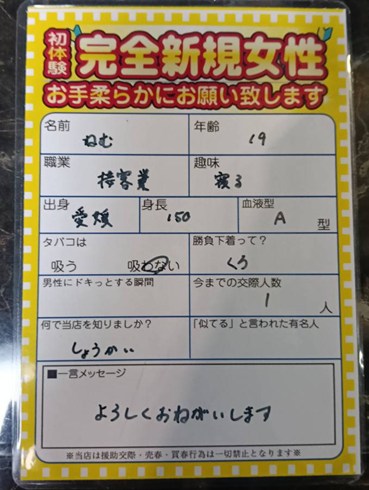 初体験 完全新規女性
お手柔らかにお願い致します
名前 ねむ 年齢 19
職業 接客業 趣味 寝る
出身 愛媛 身長 150 血液型 A 型
タバコは 勝負下着って？
吸う 吸わない くろ
男性にドキっとする瞬間 今までの交際人数
1 人
何で当店を知りましたか？ 「似てる」と言われた有名人
しょうかい
■一言メッセージ
よろしくおねがいします
※当店は援助交際・売春・買春行為は一切禁止となります※